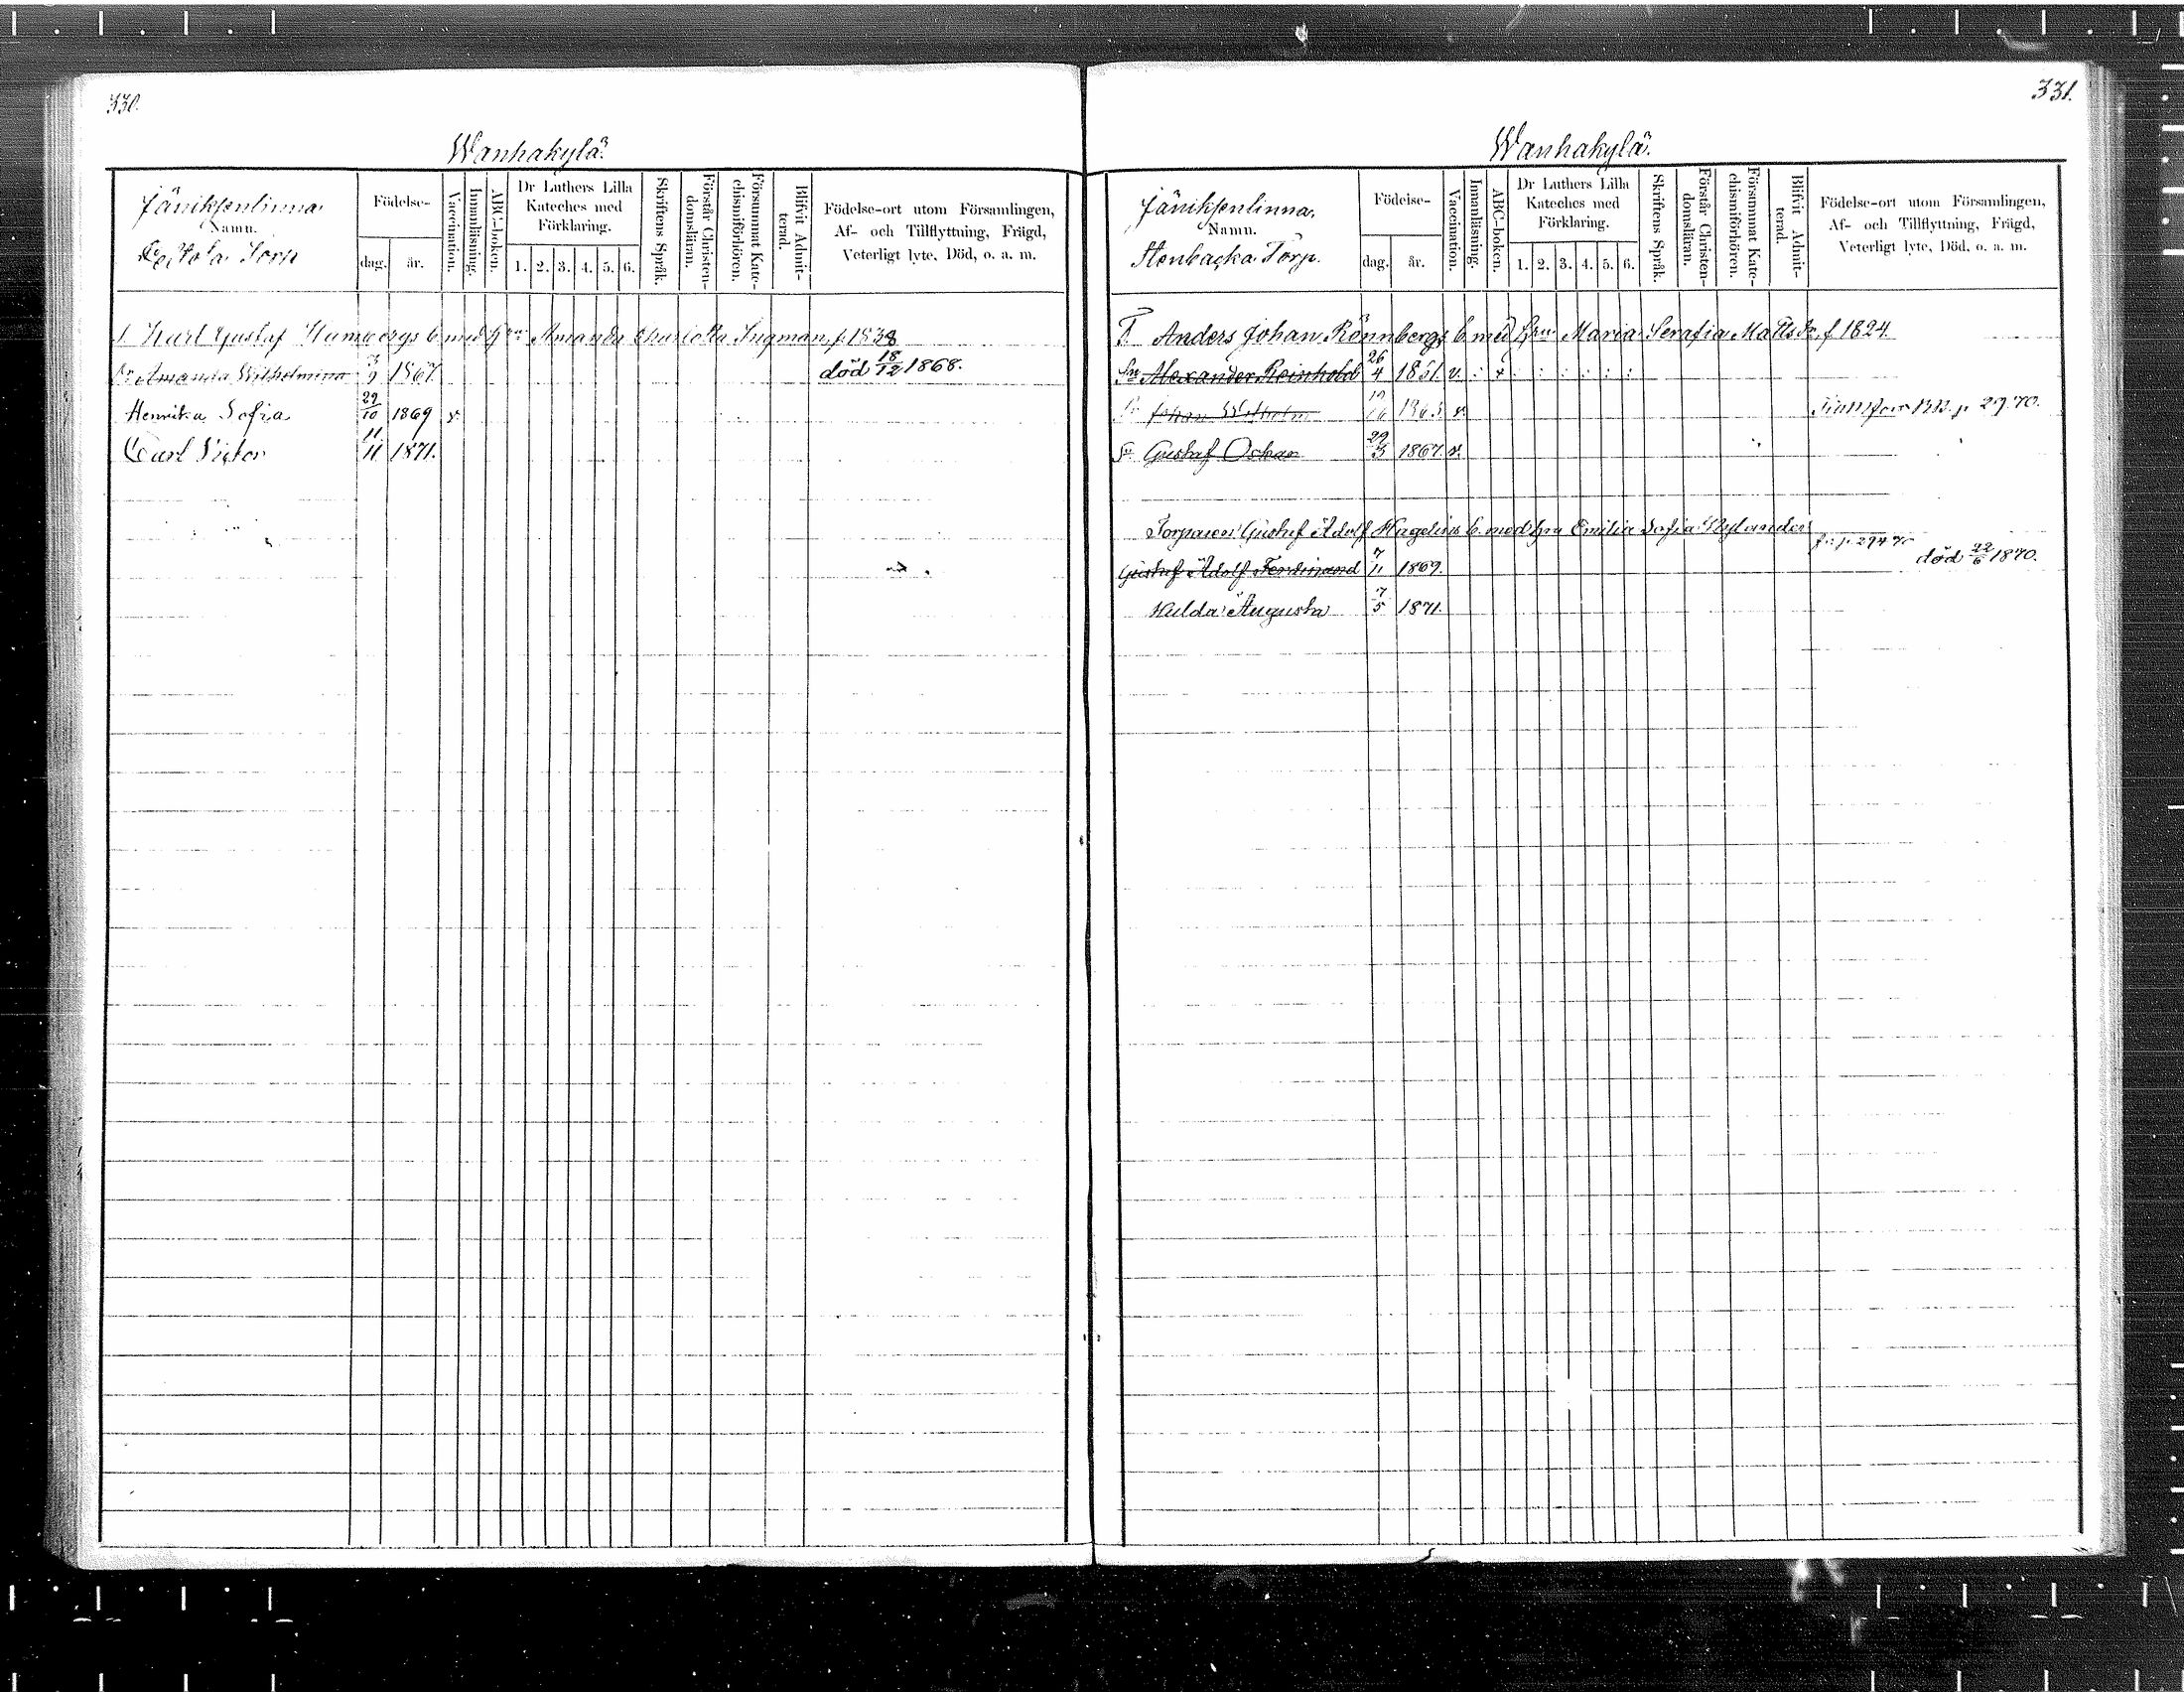 330.
Wanhakylä.
Jäniksenlinna
Namn.
Torp
Födelse-
dag.
år.
Vaccination.
Innanläsning.
ABC-boken.
Dr Luthers Lilla
Kateches med
Förklaring.
1. 2. 3. 4. 5. 6.
Skriftens Språk.
Förstår Christen-
domsläran.
Försummat Kate-
chismiförhören.
Blifvit Admit-
terad.
Födelse-ort utom Församlingen,
Af- och Tillflyttning, Frägd,
Veterligt lyte, Död, o. a. m.
Karl Gustaf b. med Amanda Charlotta Ingman, f. 1838
Amanda Wilhelmina 3/9 1867. död 18/12 1868.
Henrika Sofia 29/10 1869 v.
Carl Victor 11/11 1871.
331.
Wanhakylä.
Jäniksenlinna,
Namn.
Stenbacka Torp.
Födelse-
dag.
år.
Vaccination.
Innanläsning.
ABC-boken.
Dr Luthers Lilla
Kateches med
Förklaring.
1. 2. 3. 4. 5. 6.
Skriftens Språk.
Förstår Christen-
domsläran.
Försummat Kate-
chismiförhören.
Blifvit Admit-
terad.
Födelse-ort utom Församlingen,
Af- och Tillflyttning, Frägd,
Veterligt lyte, Död, o. a. m.
T. Anders Johan Rönnbergs b. med hru Maria Serafia Mattsdr. f 1824
Sn Alexander Reinhold 26/4 1851. v.
Sn Johan Wilhelm 1863 v. p. 29.70.
Sn Gustaf Oskar 29/3 1867. v.
Torparen Gustaf Adolf Hagelins b. med hru Emilia Sofia Nylander
Gustaf Adolf Ferdinand 7/11 1869. död 22/6 1870.
Hulda Augusta 7/5 1871.